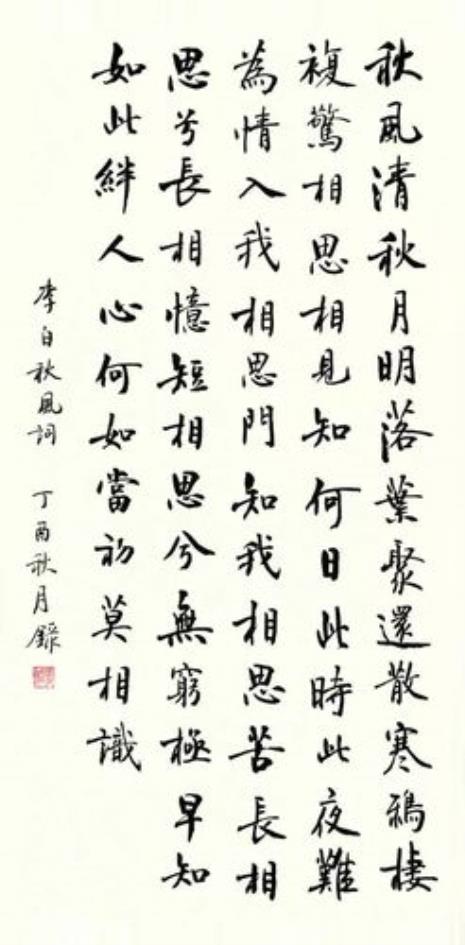 秋風清秋月明落葉聚還散寒鴉棲
複驚相思相見知何日此時此夜難
為情入我相思門知我相思苦長相
思兮長相憶短相思兮無窮極早知
如此絆人心何如當初莫相識
李白秋風詞 丁酉秋月錄